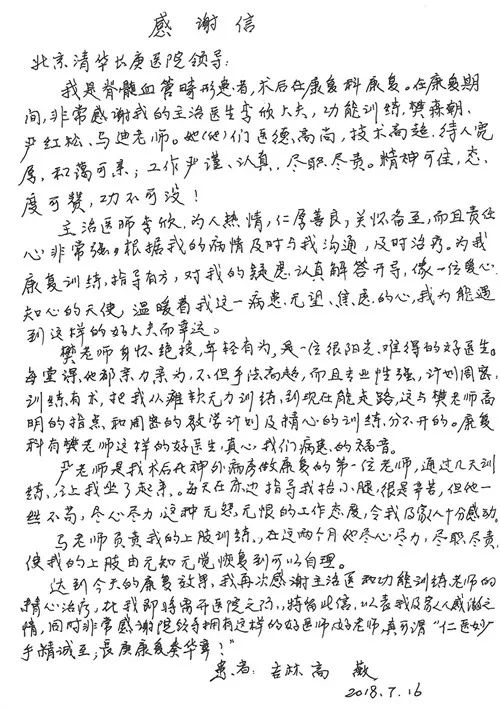 感谢信
北京清华长庚医院领导:
我是脊髓血管畸形患者,术后在康复科康复。在康复期
间,非常感谢我的主治医生李欣大夫,功能训练,樊森朝、
尹红松、马迪老师。她(他)们医德高尚,技术高超,待人宽
厚,和蔼可亲;工作严谨、认真、尽职、尽责。精神可佳,态
度可赞,功不可没!
主治医师李欣,为人热情,仁厚善良,关怀备至,而且责任
心非常强。根据我的病情及时与我沟通,及时治疗。为我
康复训练,指导有方,对我的疑虑认真解答开导,像一位暖心
知心的天使,温暖着我这一病患无望、焦虑的心,我为能遇
到这样的好大夫而幸运。
樊老师身怀绝技,年轻有为,是一位很阳光、难得的好医生。
每堂课他都亲力亲为,不但手法高超,而且专业性强,计划周密,
训练有术,把我从瘫软无力训练到现在能走路,这与樊老师高
明的指点和周密的教学计划及精心的训练分不开的。康复
科有樊老师这样的好医生,真心我们病患的福音。
尹老师是我术后在神外病房做康复的第一位老师,通过几天训
练,让我坐了起来。每天在床边指导我抬小腿,很是辛苦,但他一
丝不苟,尽心尽力,这种无怨无恨的工作态度,令我及家人十分感动。
马老师负责我的上肢训练,在这两个月他尽心尽力,尽职尽责,
使我的上肢由无知无觉恢复到可以自理。
达到今天的康复效果,我再次感谢主治医和功能训练老师的
精心治疗,在我即将离开医院之际,特留此信,以表我及家人感激之
情,同时非常感谢院领导拥有这样的好医师好老师,真可谓"仁医妙
手精诚至,长庚康复奏华章!"
患者:吉林高敏
2018.7.16